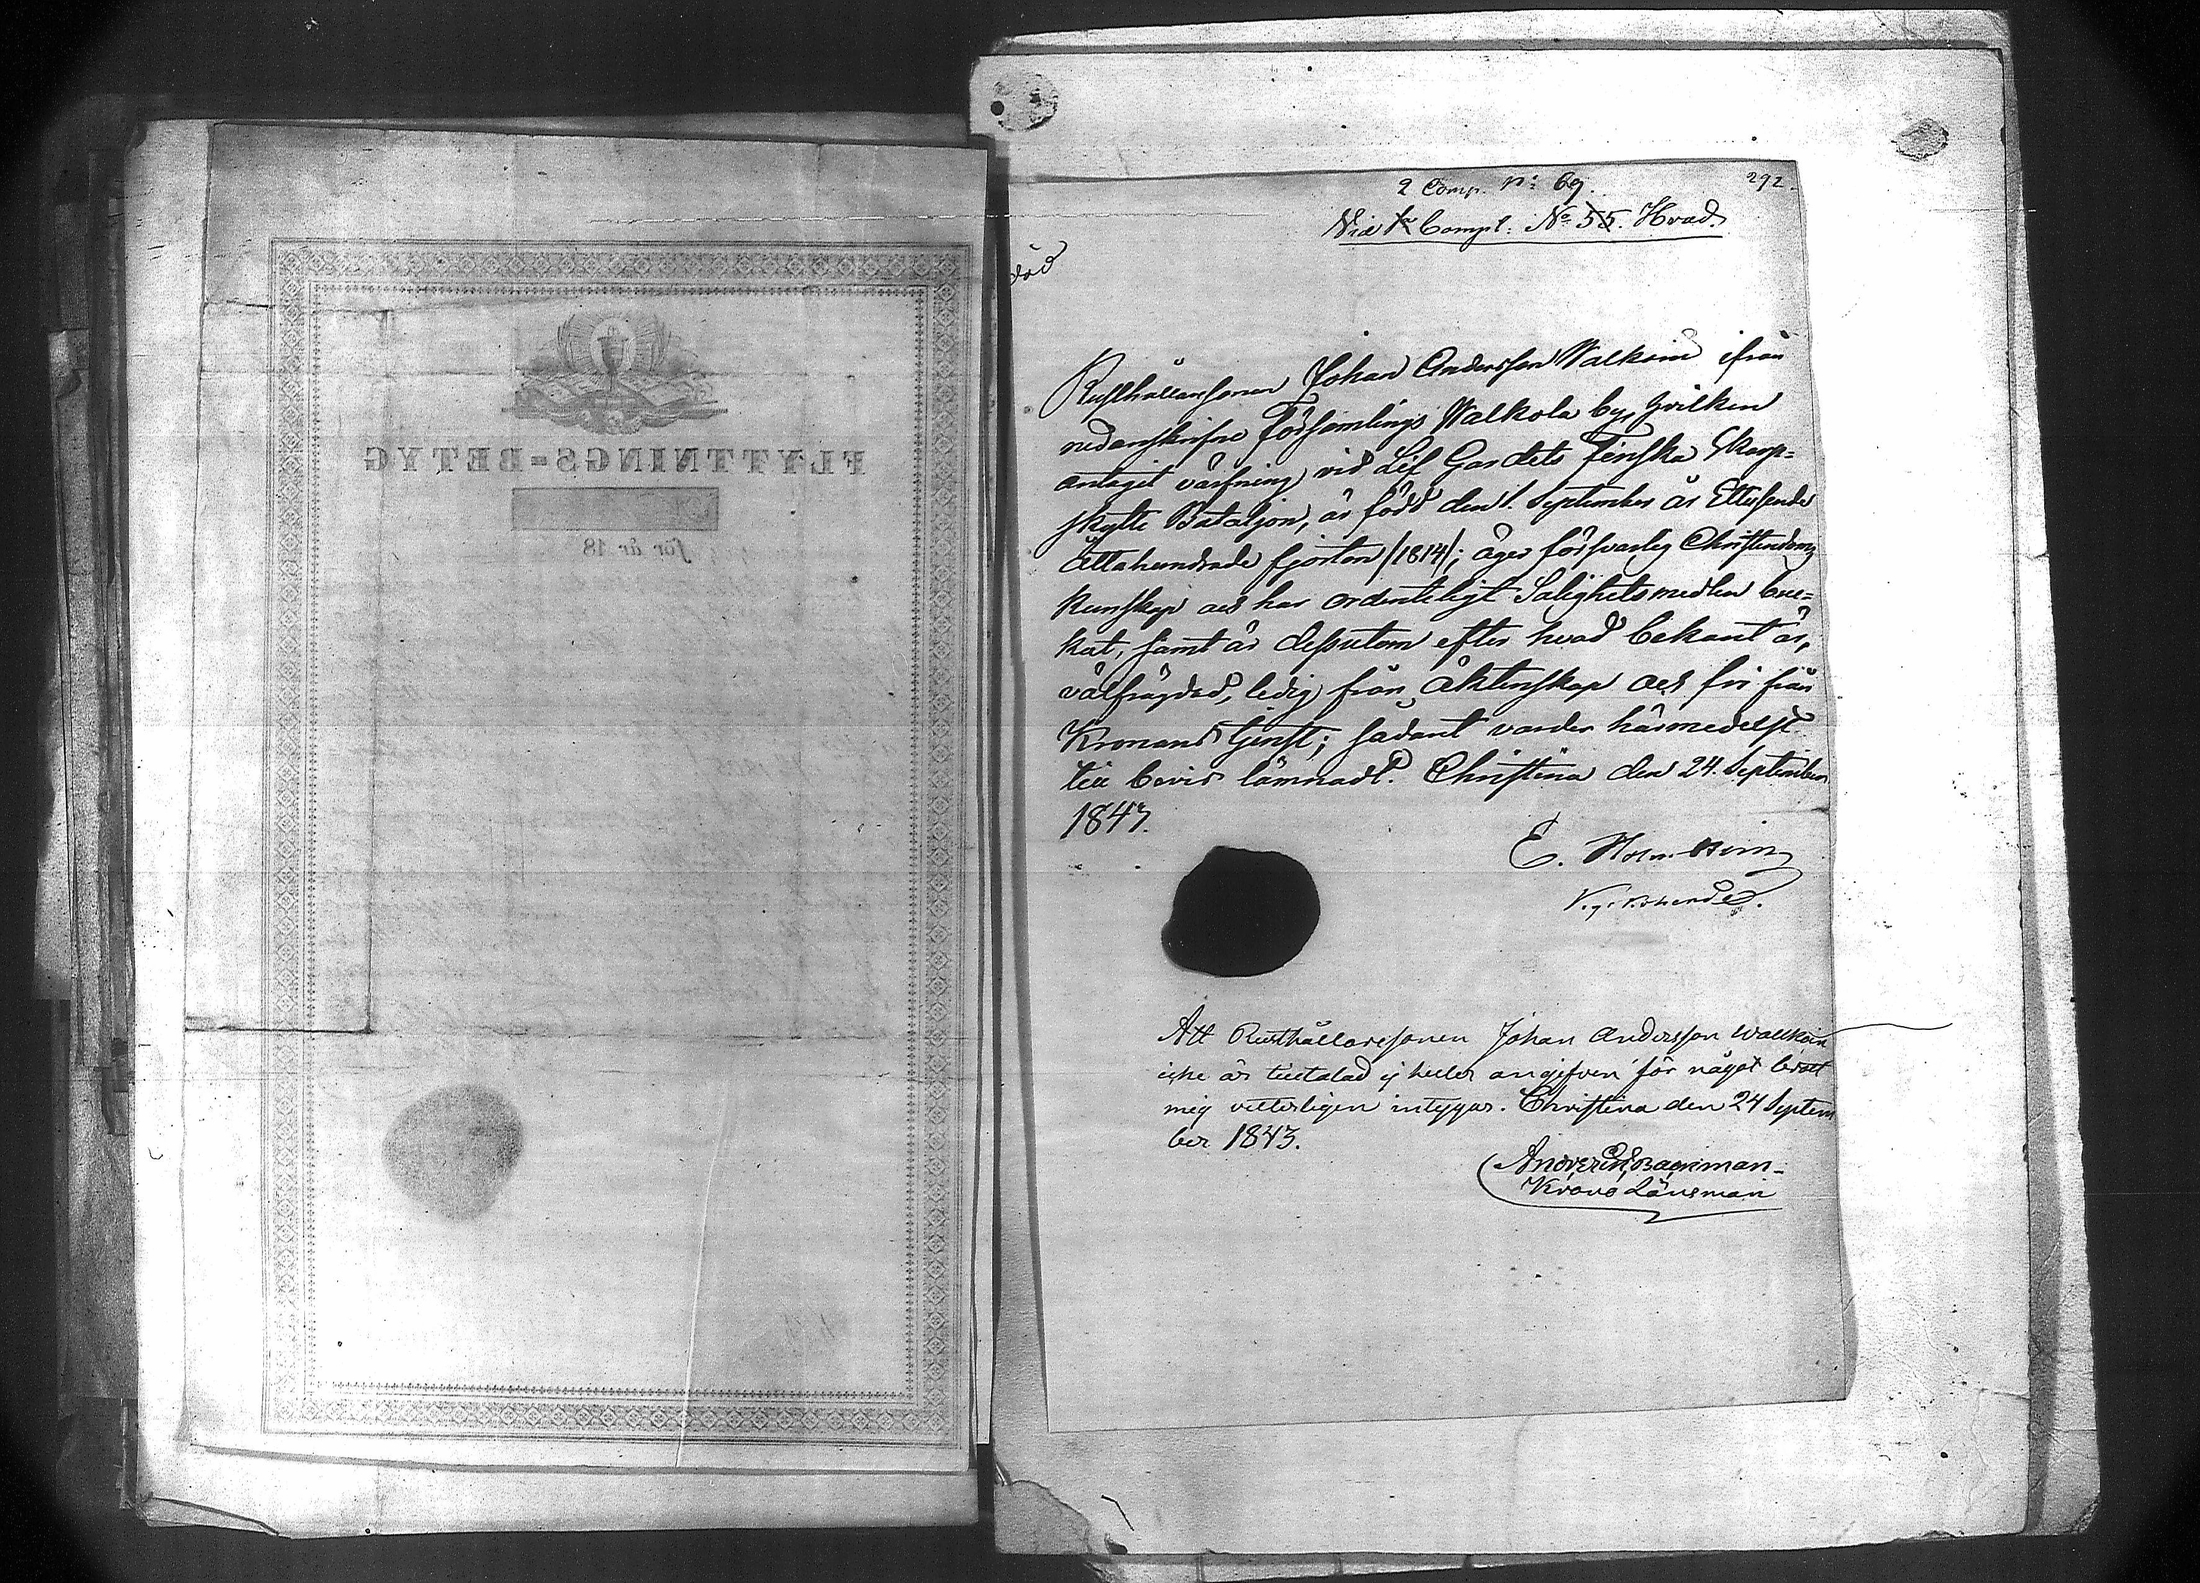 FLYTTNINGS=BETYG
för år 18
292.
2 Comp. N: 69.
Vid Compt: No 55. Hvad
död
Rusthållaresonen Johan Andersson Walkoin ifrån
nedanskrifne Församlings Walkola by, hvilken
antagit värfning vid Lif Gardets Finska Skarp=
skytte Bataljon, är född den 1. September år Ettusende
Åttahundrade fjorton /1814/; äger försvarlig Christendoms
kunskap och har ordenteligt Salighetsmedlen bru=
kat, samt är dessutom efter hvad bekant är,
välfrägdad, ledig från äktenskap och fri från
Kronans tjenst; sådant varder härmedelst
till bevis lämnadt. Christina den 24. September
1843.
E.
V. Pastor
Att Rusthållaresonen Johan Andersson Walkoin
icke är tilltalad ej heller angifven för något brott
mig vitterligen intygar. Christina den 24 Septem
ber 1843.
Backman
Krono Länsman